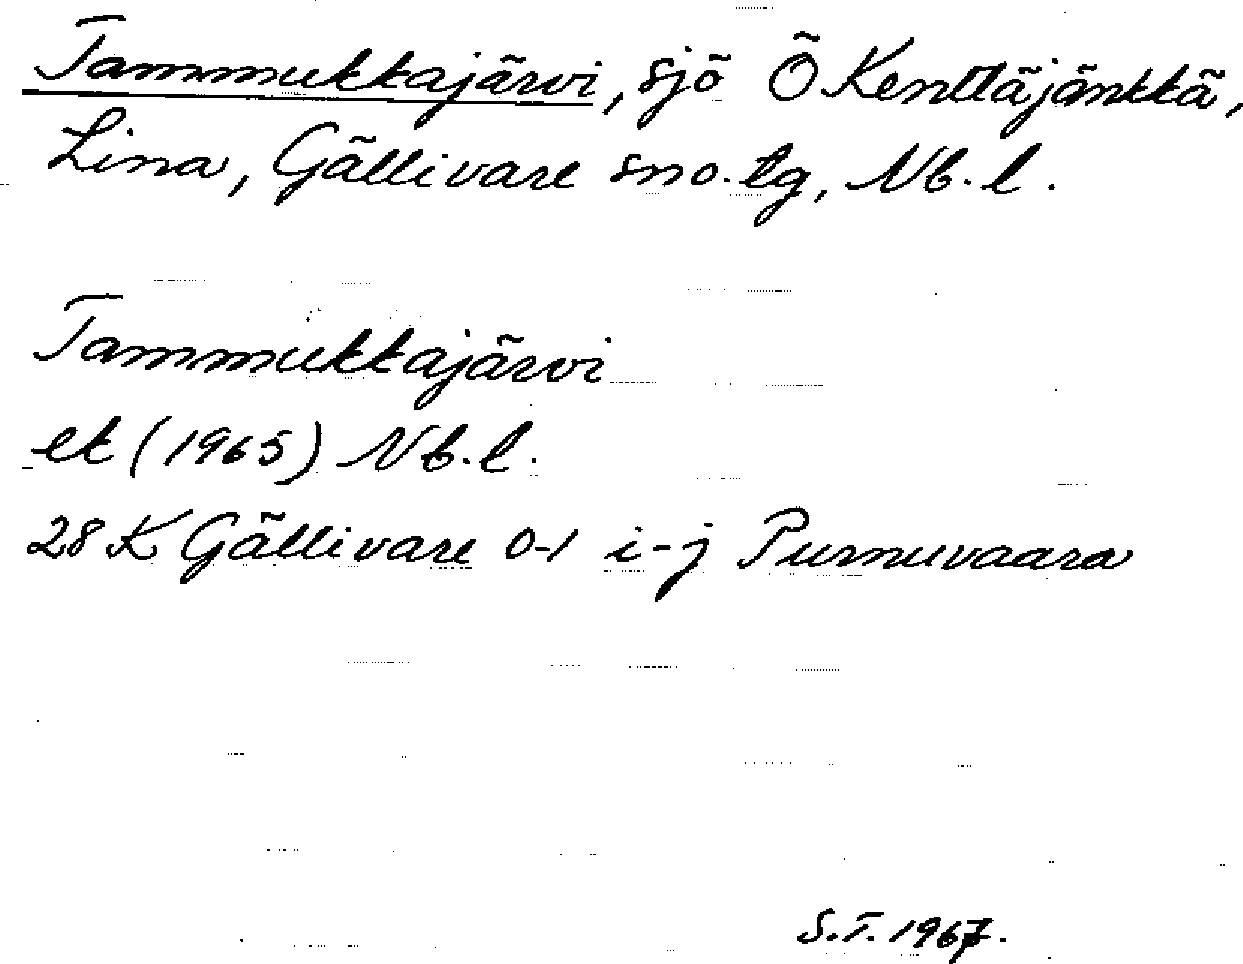 Tammukkajärvi, sjö Ö Kenttäjänkkä,
Lina, Gällivare sno. tg, Nb. l.
Tammukkajärvi
ek (1965) Nb. l.
28 K Gällivare 0-1 i-j Purnuvaara
S.T. 1967.